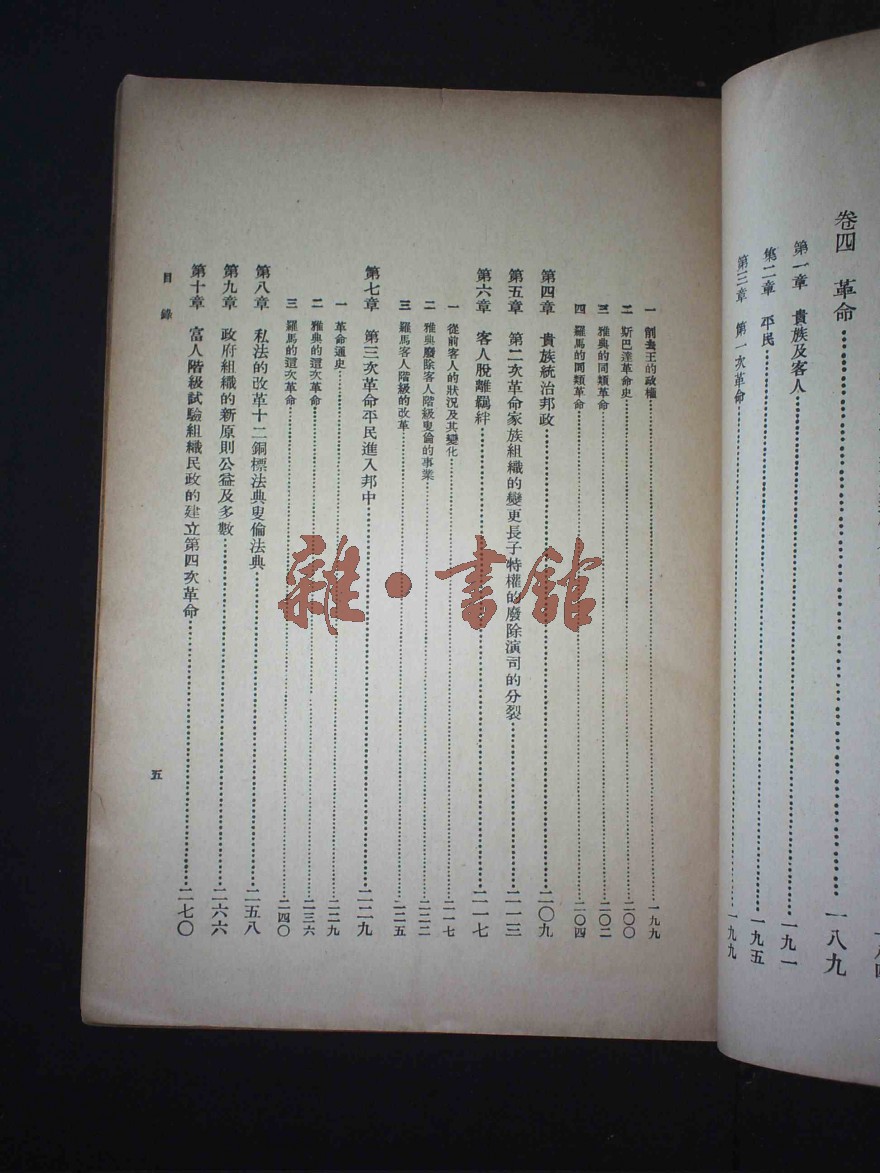 卷四　革命…………一八九
第一章　貴族及客人…………一九一
第二章　平民…………一九五
第三章　第一次革命…………一九九
一　削去王的政權…………一九九
二　斯巴達革命史…………二〇〇
三　雅典的同類革命…………二〇二
四　羅馬的同類革命…………二〇四
第四章　貴族統治邦政…………二〇九
第五章　第二次革命家族組織的變更長子特權的廢除演司的分裂…………二一三
第六章　客人脫離羈絆…………二一七
一　從前客人的狀況及其變化…………二一七
二　雅典廢除客人階級叟倫的事業…………二二二
三　羅馬客人階級的改革…………二二五
第七章　第三次革命平民進入邦中…………二二九
一　革命通史…………二二九
二　雅典的這次革命…………二三六
三　羅馬的這次革命…………二四〇
第八章　私法的改革十二銅標法典叟倫法典…………二五八
第九章　政府組織的新原則公益及多數…………二六六
第十章　富人階級試驗組織民政的建立第四次革命…………二七〇
目錄
五
雜·書館